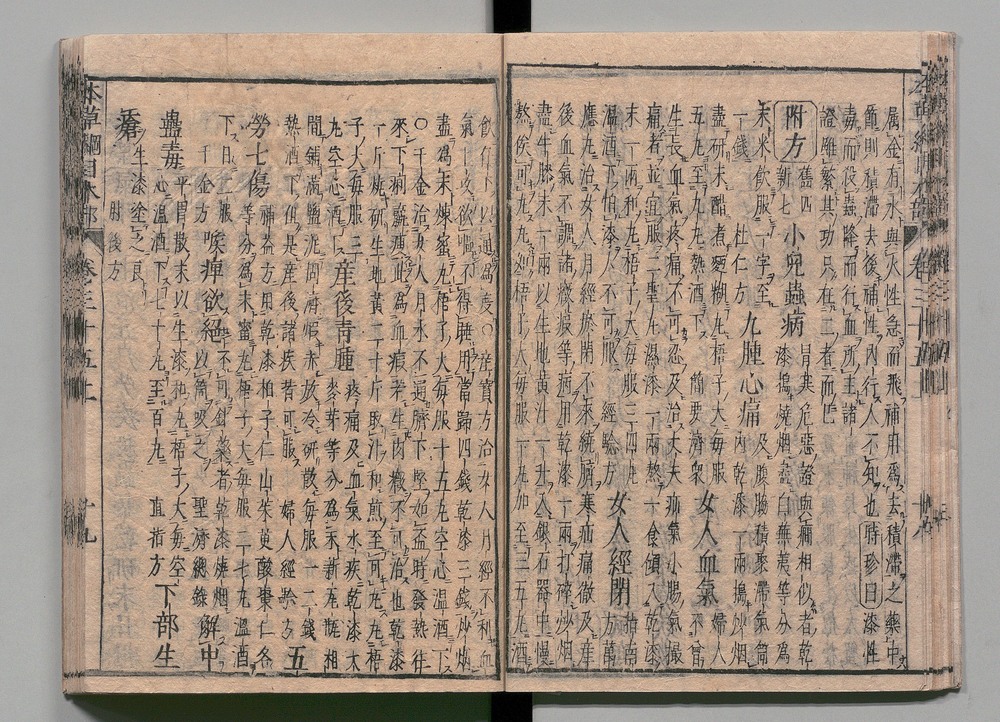 屬金有水與火性急而飛補用爲去積滯之藥中
節則積滯去後補性內行人不知也時珍曰漆性
毒而殺蟲降而行血所主諸
證雖繁其功只在二者而已
附方舊四新七小兒蟲病胃寒危惡證與癇相似者乾漆搗燒烟盡白蕪荑等分爲
末米飲服一字至一錢杜仁方九種心痛及腹脇積聚滯氣筒內乾漆一兩搗炒烟
盡研末醋煮麪糊丸梧子大每服五丸至九丸熱酒下簡要濟衆女人血氣婦人不曾
生長血氣疼痛不可忍及治丈夫疝氣小腸氣撮
痛者並宜服二聖丸濕漆一兩熬一食頃入乾漆
末一兩和丸梧子大每服三四丸
溫酒下經驗方女人經閉方萬
應丸治女人月經瘀閉不來繞臍寒疝痛徹及産
後血氣不調諸癥瘕等病用乾漆一兩打碎炒烟
盡牛膝末一兩以生地黃汁一升入銀石器中慢
熬俟可丸丸如梧子大每服一丸加至三五丸酒
飲任下以通爲度○產寶方治女人月經不利血
氣上攻欲嘔不得睡用當歸四錢乾漆三錢炒烟
盡爲末煉蜜丸梧子大每服十五丸空心溫酒下
○千金治女人月水不通臍下堅如盃時發熱往
來下痢羸瘦此爲血瘕若生肉癥不可治也乾漆
一斤燒研生地黃二十斤取汁和煎至可丸丸梧
子大每服三丸空心酒下產後青腫疼痛及血氣水疾乾漆大麥芽等分爲末新瓦罐相
間鋪滿鹽泥固濟煆赤放冷研散每服一二錢
熱酒下但是産後諸疾皆可服婦人經驗方五
勞七傷補益方用乾漆柏子仁山茱萸酸棗仁各等分爲末蜜丸梧子大每服二七丸溫酒
下日二服千金方喉痺欲絕不可鍼藥者乾漆燒烟以筒吸之聖濟總錄解中
蠱毒平胃散末以生漆和丸梧子大每空心溫酒下七十丸至百丸直指方下部生
瘡生漆塗之良肘後方
本草綱目木部
卷三十五上
十九